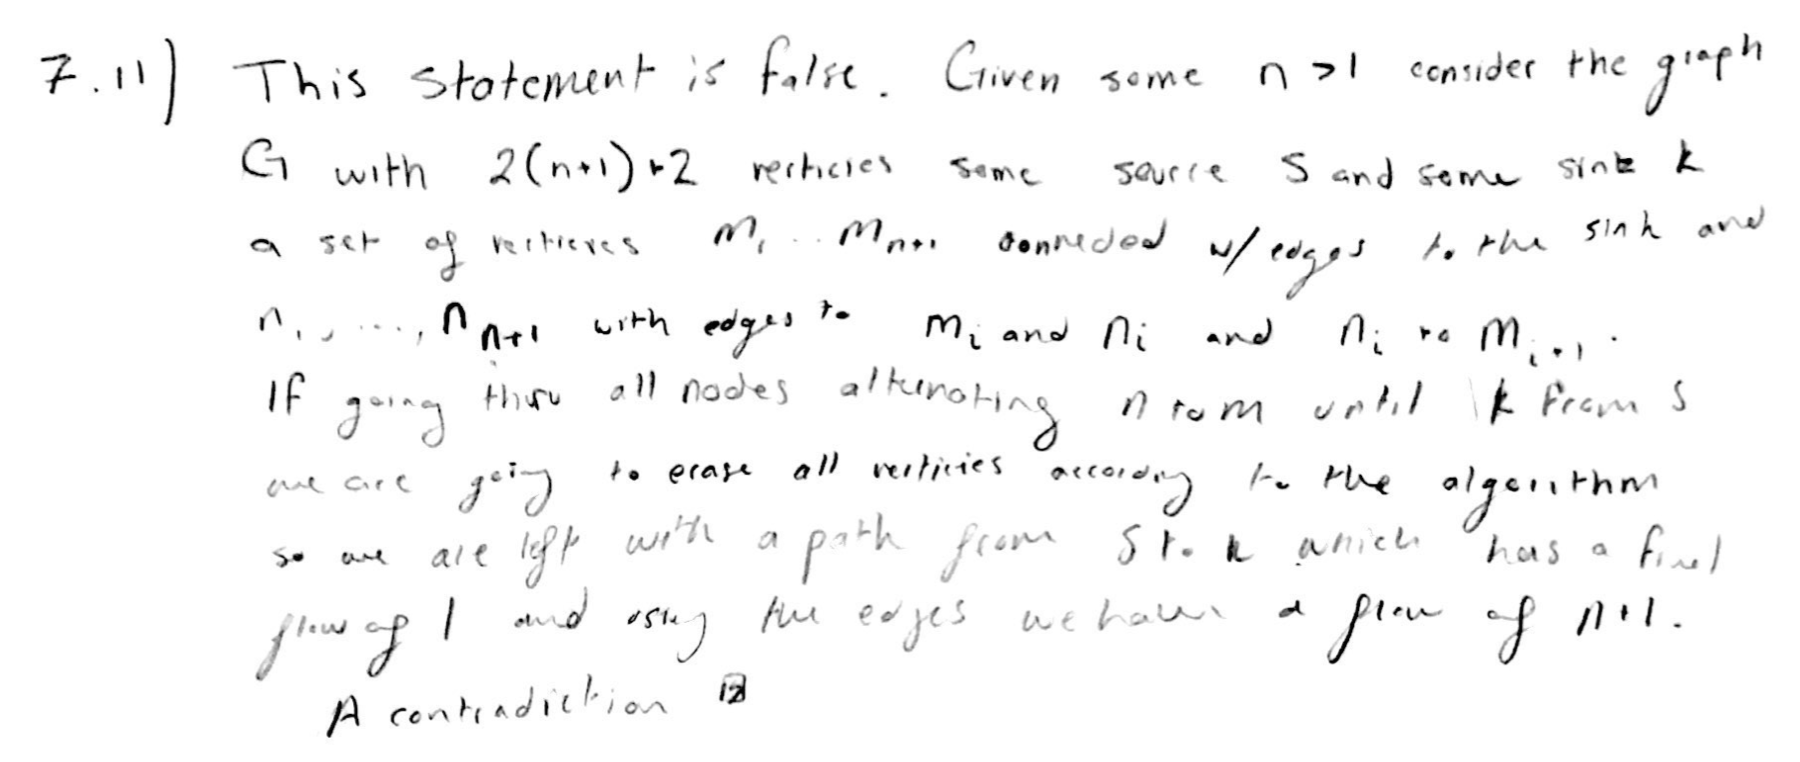 7.11) This statement is false. Given some n >1 consider the graph
G with 2(n+1)+2 verticies some source S and some sink k
a set of verticies m1 .. mn+1 connected w/ edges to the sink and
n1, ...., nn+1 with edges to mi and ni and ni to mi+1.
If going thru all nodes alternating n to m until k from s
we are going to erase all verticies according to the algorithm
so we are left with a path from S to k which has a final
flow of 1 and using the edges we have a flow of n+1.
A contradiction